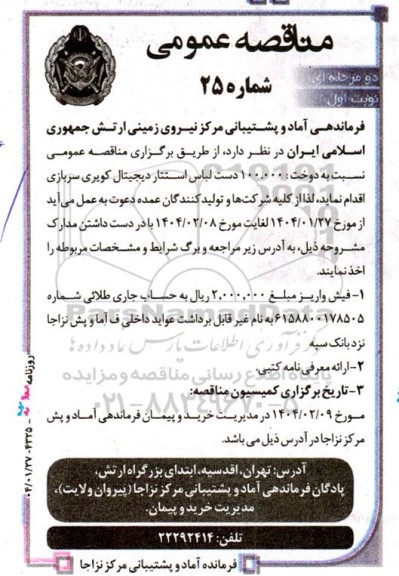 مناقصه عمومی
دو مرحله ای
نوبت اول
شماره ۲۵
فرماندهی آماد و پشتیبانی مرکز نیروی زمینی ارتش جمهوری
اسلامی ایران در نظر دارد، از طریق برگزاری مناقصه عمومی
نسبت به دوخت: ۱۰۰،۰۰۰ دست لباس استتار دیجیتال کویری سربازی
اقدام نماید، لذا از کلیه شرکت‌ها و تولیدکنندگان عمده دعوت به عمل می‌آید
از مورخ ۱۴۰۴/۰۱/۲۷ لغایت مورخ ۱۴۰۴/۰۲/۰۸ با در دست داشتن مدارک
مشروحه ذیل، به آدرس زیر مراجعه و برگ شرایط و مشخصات مربوطه را
اخذ نمایند.
۱- فیش واریز مبلغ ۲,۰۰۰,۰۰۰ ریال به حساب جاری طلائی شماره
۶۱۵۸۸۰۰۱۷۸۵۰۵ به نام غیر قابل برداشت عواید داخلی ف آما و پش نزاجا
نزد بانک سپه
۲- ارائه معرفی نامه کتبی.
۳- تاریخ برگزاری کمیسیون مناقصه:
مورخ ۱۴۰۴/۰۲/۰۹ در مدیریت خرید و پیمان فرماندهی آماد و پش
مرکز نزاجا در آدرس ذیل می باشد.
آدرس: تهران، اقدسیه، ابتدای بزرگراه ارتش،
پادگان فرماندهی آماد و پشتیبانی مرکز نزاجا (پیروان ولایت)،
مدیریت خرید و پیمان.
تلفن: ۲۲۲۹۲۴۱۴
فرمانده آماد و پشتیبانی مرکز نزاجا
روزنامه
۰۴/۰۱/۲۷-۶۳۲۵
ParsNamadData
پایگاه اطلاع رسانی مناقصه و مزایده
۰۲۱-۸۸۳۴۹۶۷۰-۵